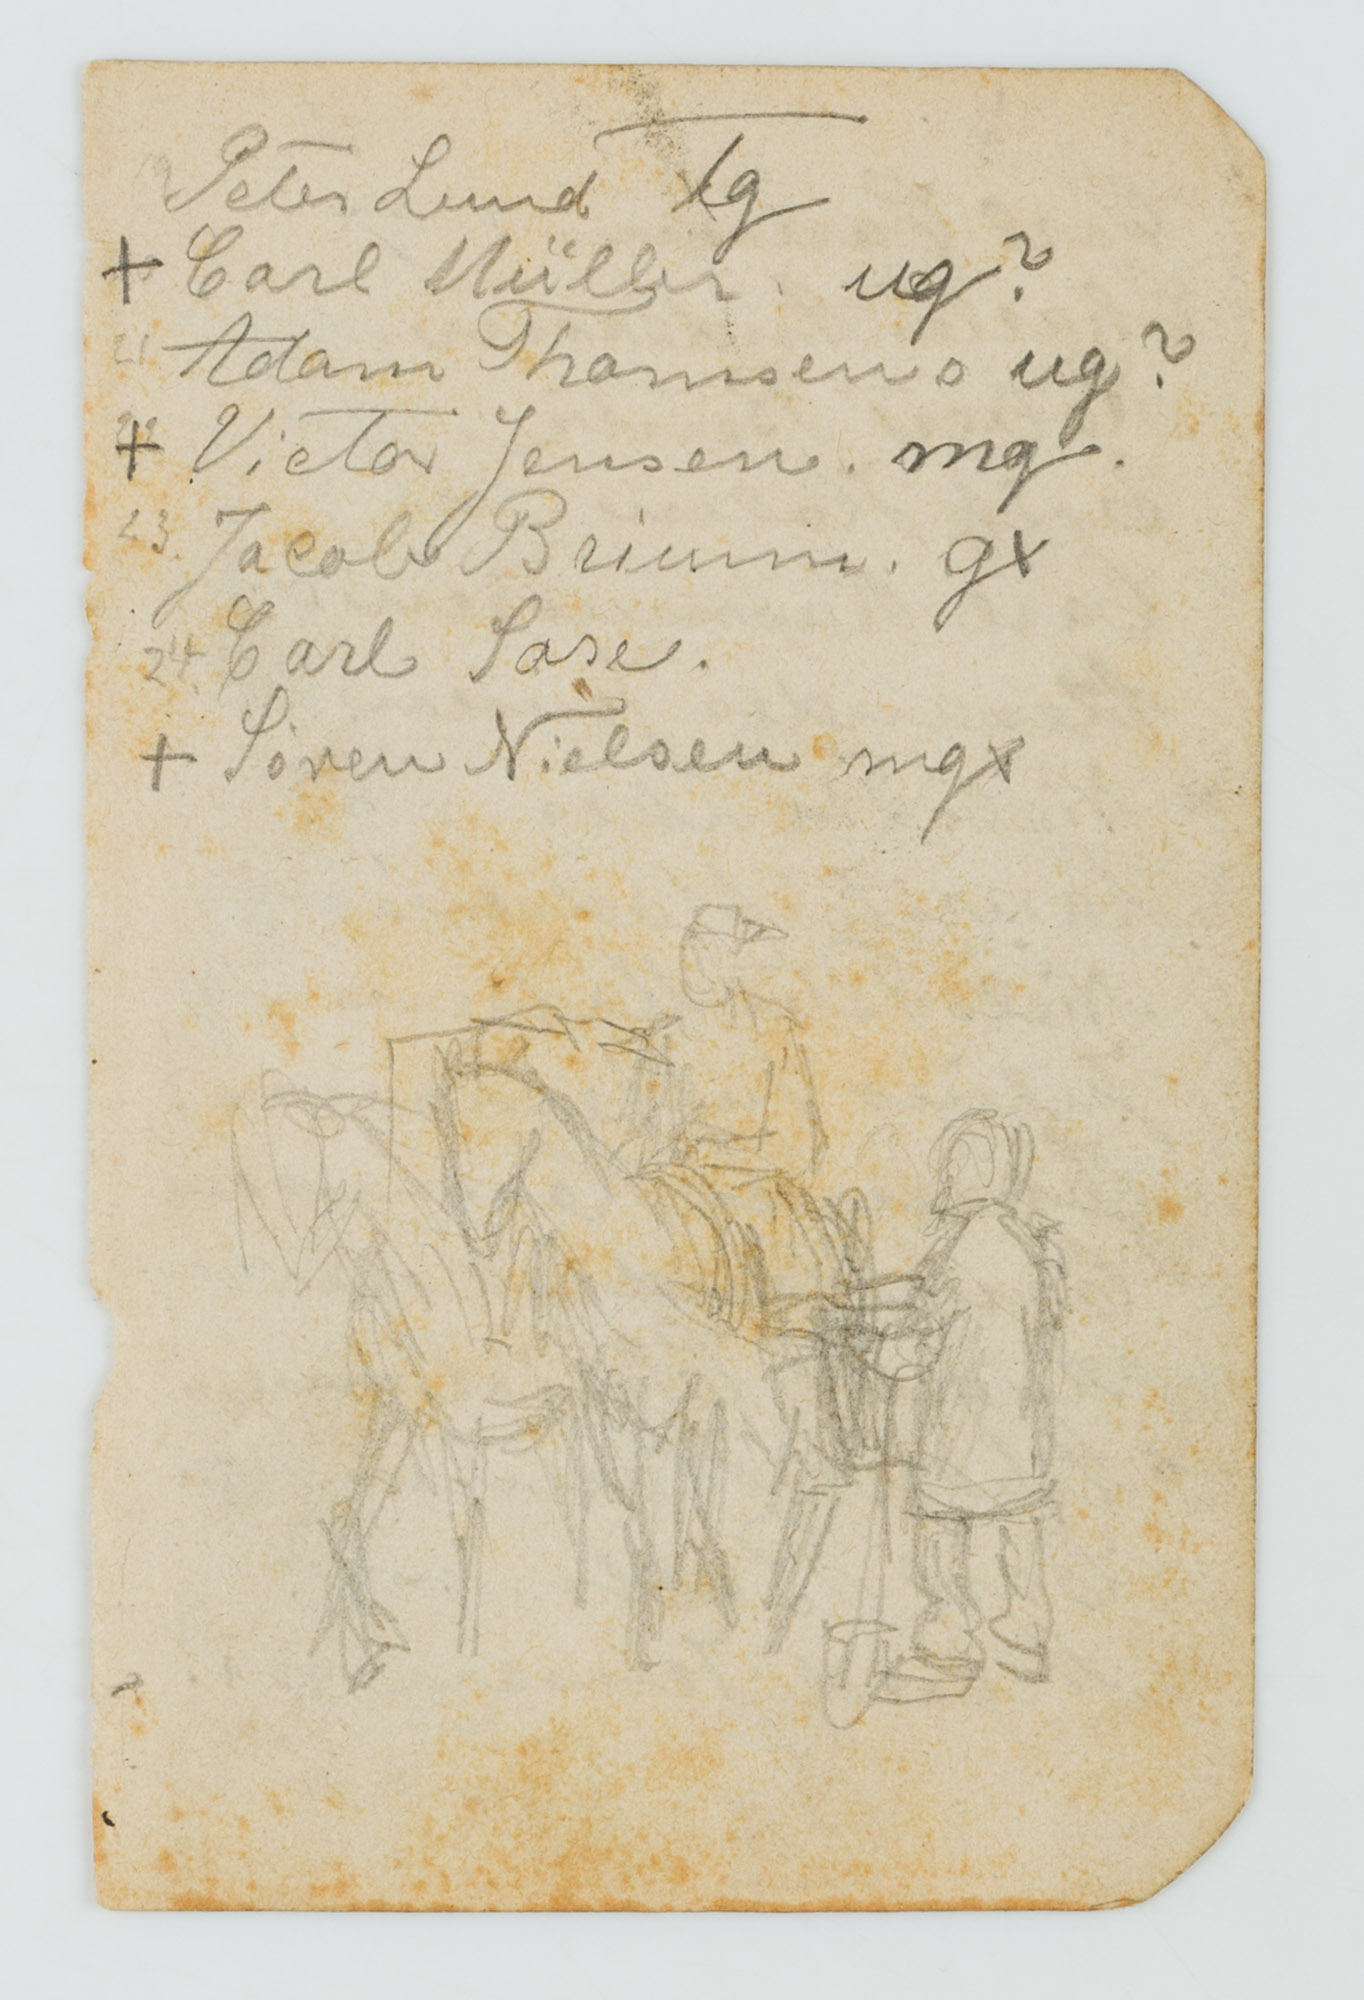 Peter Lund tg
+ Carl Müller. ug?
21 Adam Thomsen o ug?
+ Victor Jensen. mg.
23. Jacob Bruun. gx
24. Carl Sase.
+ Sören Nielsen mgx